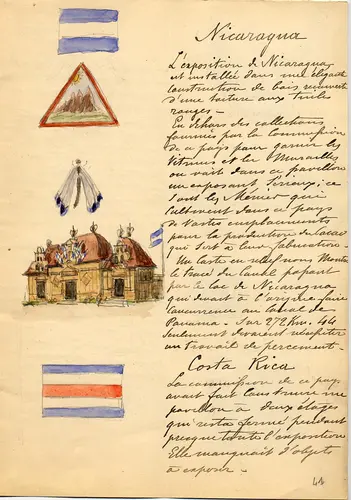 Nicaragua
L'exposition de Nicaragua
est installée dans une élégante
construction de bois recouverte
d'une toiture aux tuiles
rouges -
En dehors des collections
fournies par la Commission
de ce pays pour garnir les
Vitrines et les Murailles
on voit dans ce pavillon
un exposant sérieux; ce
sont les Menier qui
cultivent dans ce pays
de vastes emplacements
pour la production du Cacao
qui sert à leur fabrication -
Un Carte en relief nous montre
le tracé du Canal passant
par le lac de Nicaragua
qui devait à l'origine faire
concurrence au Canal de
Panama - Sur 272 Km. 44
seulement devraient nécessiter
un travail de percement -
Costa Rica
La commission de ce pays
avait fait construire un
pavillon à deux étages
qui resta fermé pendant
presque toute l'exposition
Elle manquait d'objets
à exposer -
41